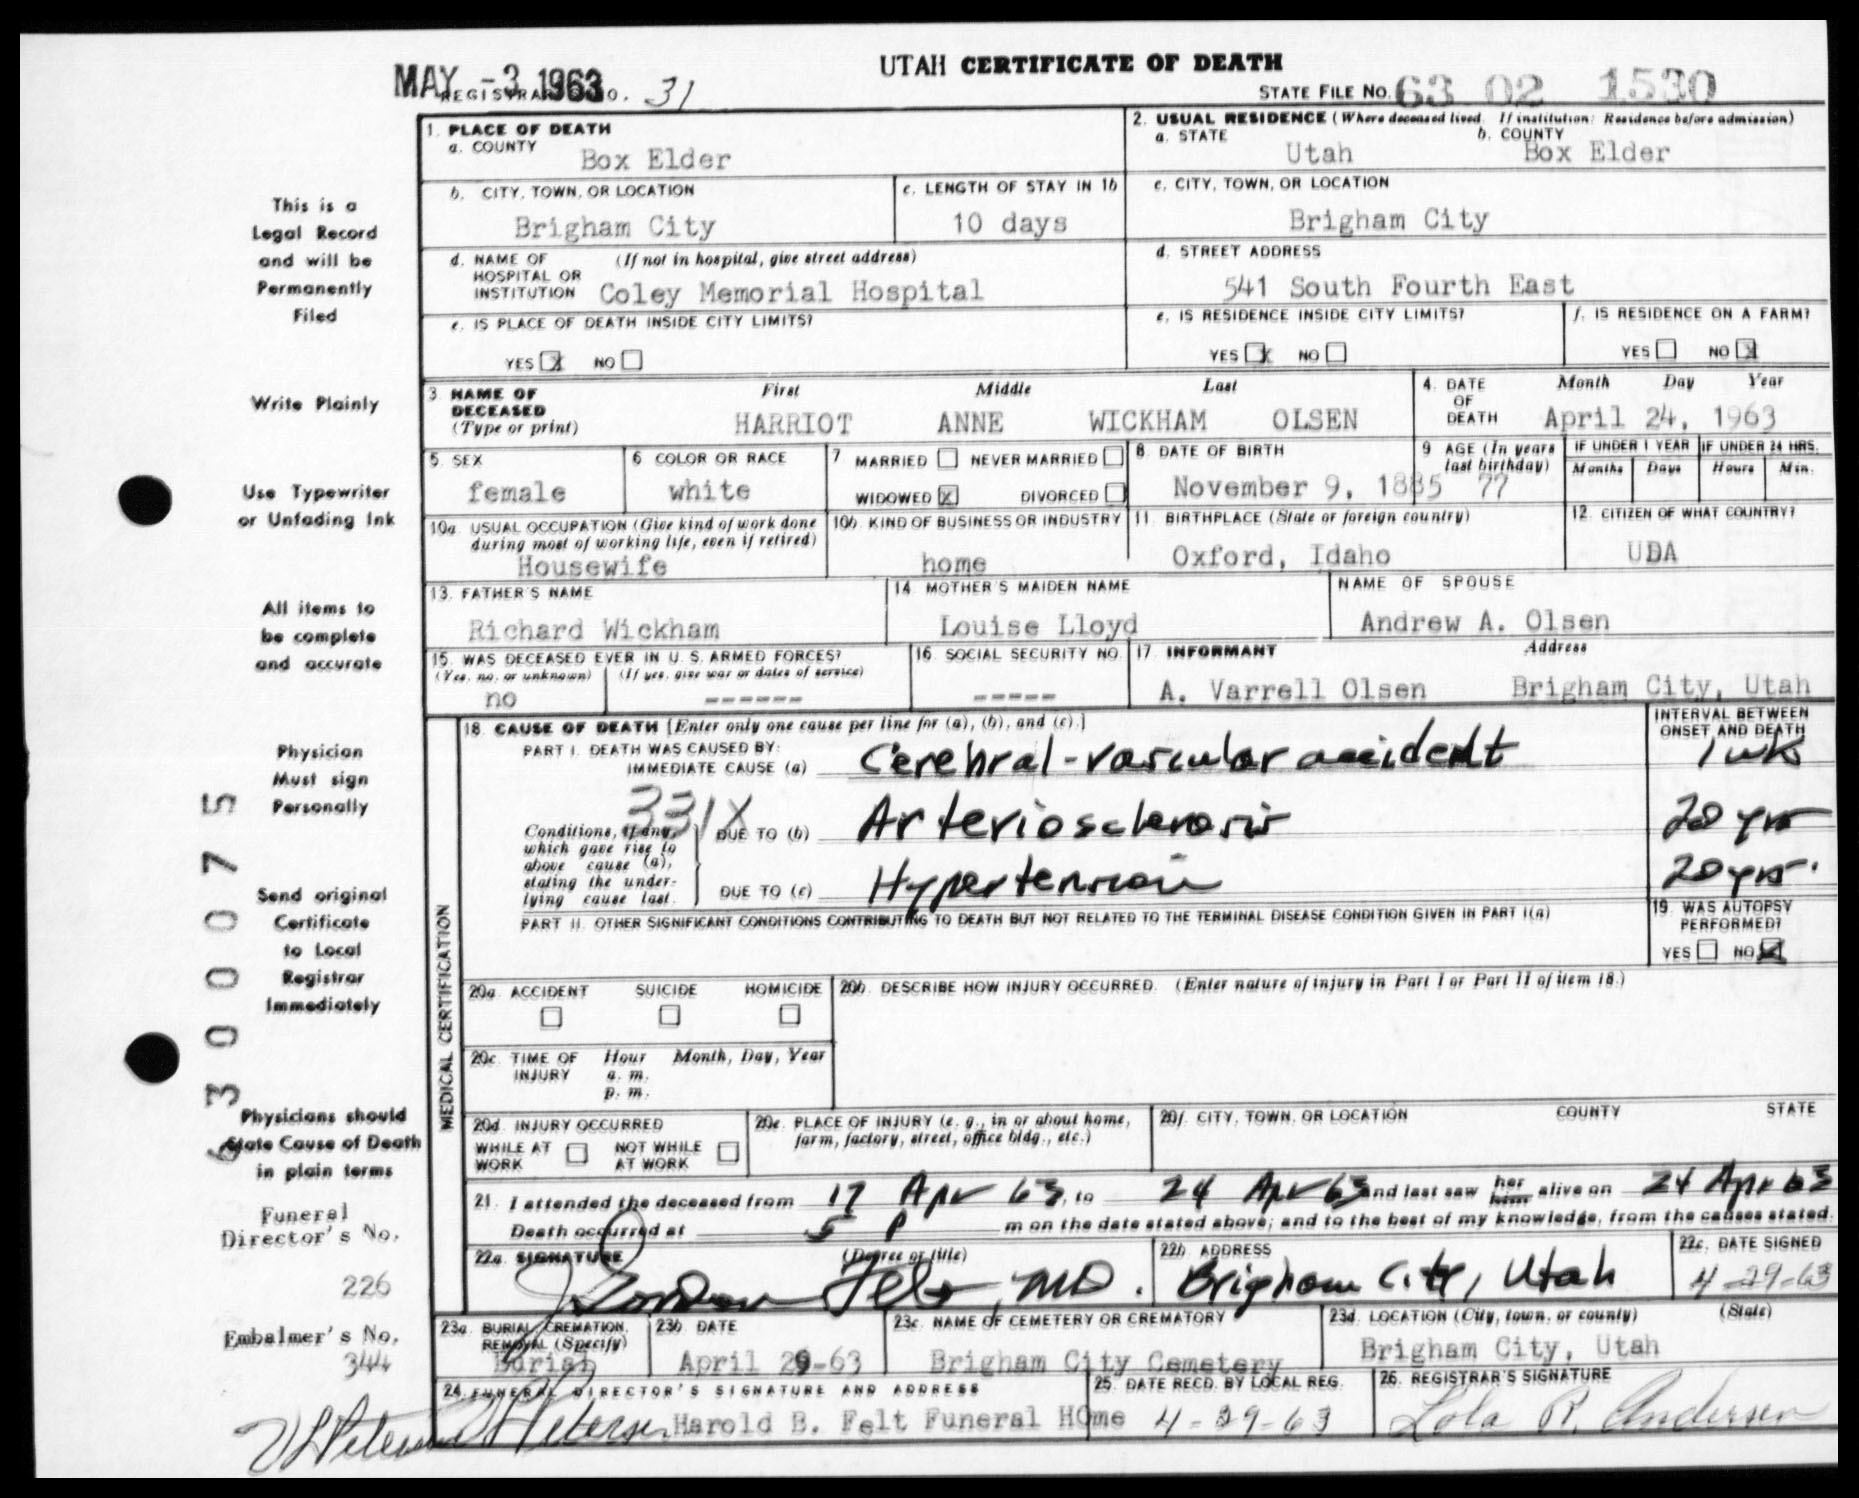 UTAH CERTIFICATE OF DEATH
MAY -3 1963
REGISTRAR'S NO. 31
STATE FILE NO. 63 02 1530
1. PLACE OF DEATH
a. COUNTY
Box Elder
2. USUAL RESIDENCE (Where deceased lived. If institution: Residence before admission)
a. STATE b. COUNTY
Utah Box Elder
b. CITY, TOWN, OR LOCATION
Brigham City
c. LENGTH OF STAY IN 1b
10 days
c. CITY, TOWN, OR LOCATION
Brigham City
d. NAME OF HOSPITAL OR INSTITUTION (If not in hospital, give street address)
Coley Memorial Hospital
d. STREET ADDRESS
541 South Fourth East
e. IS PLACE OF DEATH INSIDE CITY LIMITS?
YES X NO
e. IS RESIDENCE INSIDE CITY LIMITS?
YES X NO
f. IS RESIDENCE ON A FARM?
YES NO X
3 NAME OF DECEASED (Type or print)
First Middle Last
HARRIOT ANNE WICKHAM OLSEN
4. DATE OF DEATH
Month Day Year
April 24, 1963
5. SEX
female
6 COLOR OR RACE
white
7 MARRIED NEVER MARRIED
WIDOWED X DIVORCED
8. DATE OF BIRTH
November 9, 1885
9 AGE (In years last birthday)
77
IF UNDER 1 YEAR IF UNDER 24 HRS.
Months Days Hours Min.
10a. USUAL OCCUPATION (Give kind of work done during most of working life, even if retired)
Housewife
10b. KIND OF BUSINESS OR INDUSTRY
home
11. BIRTHPLACE (State or foreign country)
Oxford, Idaho
12. CITIZEN OF WHAT COUNTRY?
UDA
13. FATHER'S NAME
Richard Wickham
14. MOTHER'S MAIDEN NAME
Louise Lloyd
NAME OF SPOUSE
Andrew A. Olsen
15. WAS DECEASED EVER IN U. S. ARMED FORCES?
(Yes, no, or unknown) (If yes, give war or dates of service)
no ------
16. SOCIAL SECURITY NO.
-----
17. INFORMANT Address
A. Varrell Olsen Brigham City, Utah
18. CAUSE OF DEATH [Enter only one cause per line for (a), (b), and (c).]
INTERVAL BETWEEN ONSET AND DEATH
PART I. DEATH WAS CAUSED BY:
IMMEDIATE CAUSE (a) Cerebral-vascular accident 1 wk
331X
Conditions, if any, which gave rise to above cause (a), stating the underlying cause last.
DUE TO (b) Arteriosclerosis 20 yrs
DUE TO (c) Hypertension 20 yrs.
PART II. OTHER SIGNIFICANT CONDITIONS CONTRIBUTING TO DEATH BUT NOT RELATED TO THE TERMINAL DISEASE CONDITION GIVEN IN PART I(a)
19. WAS AUTOPSY PERFORMED?
YES NO X
MEDICAL CERTIFICATION
20a. ACCIDENT SUICIDE HOMICIDE
20b. DESCRIBE HOW INJURY OCCURRED. (Enter nature of injury in Part I or Part II of item 18.)
20c. TIME OF INJURY Hour Month, Day, Year
a. m.
p. m.
20d. INJURY OCCURRED
WHILE AT WORK NOT WHILE AT WORK
20e. PLACE OF INJURY (e. g., in or about home, farm, factory, street, office bldg., etc.)
20f. CITY, TOWN, OR LOCATION COUNTY STATE
21. I attended the deceased from 17 Apr 63, to 24 Apr 63 and last saw her him alive on 24 Apr 63
Death occurred at 5 P m on the date stated above; and to the best of my knowledge, from the causes stated.
22a. SIGNATURE (Degree or title)
J Gordon Felt, MD.
22b. ADDRESS
Brigham City, Utah
22c. DATE SIGNED
4-29-63
23a. BURIAL, CREMATION, REMOVAL (Specify)
Burial
23b. DATE
April 29-63
23c. NAME OF CEMETERY OR CREMATORY
Brigham City Cemetery
23d. LOCATION (City, town, or county) (State)
Brigham City, Utah
24. FUNERAL DIRECTOR'S SIGNATURE AND ADDRESS
Petersen Harold B. Felt Funeral HOme
25. DATE RECD. BY LOCAL REG.
4-29-63
26. REGISTRAR'S SIGNATURE
Lola R. Andersen
This is a
Legal Record
and will be
Permanently
Filed
Write Plainly
Use Typewriter
or Unfading Ink
All items to
be complete
and accurate
Physician
Must sign
Personally
Send original
Certificate
to Local
Registrar
Immediately
Physicians should
State Cause of Death
in plain terms
Funeral
Director's No.
226
Embalmer's No.
344
6300075